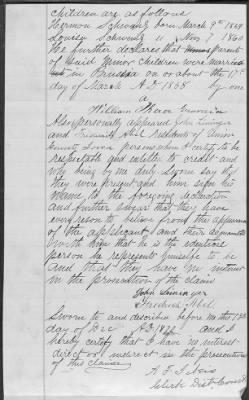 children are as follows
Herman Schwantz born March 9th 18
Louisa Schwantz " Nov 7 1860
He further declares that parent
of said minor children were married
in Prussia on or about the 17th
day of March A.D. 1858 by one
William
Also personally appeared John
and Frederick Abel residents of Union
County Iowa persons whom I certify to be
respectable and entitled to credit and
who being by me duly sworn say that
they were present and him sign his
name to the foregoing declaration
and further swear that they have
every reason to believe from the appearance
of the applicant and their acquaintance
with him that he is the identical
person he represents himself to be
And that they have no interest
in the prosecution of the claim
John
Frederick Abel
Sworn to and subscribed before me this 13th
day of Dec A.D. and I
hereby certify that I have no interest
direct or indirect in the prosecution
of this claim
Clerk Dist Court